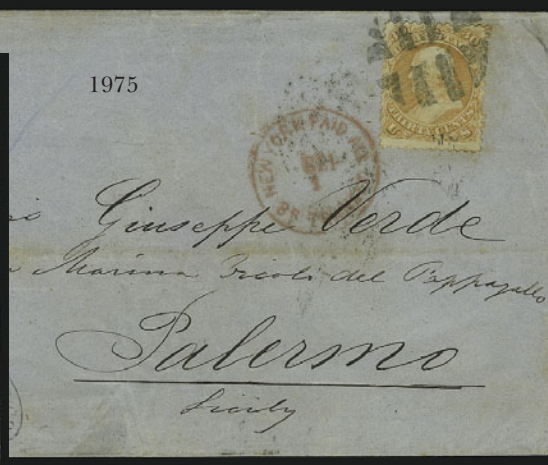 1975
30
THIRTY CENTS
NEW YORK PAID ALL
BR TRANSIT
Giuseppe Verde
Marina Vicoli del Pappagallo
Palermo
Sicily